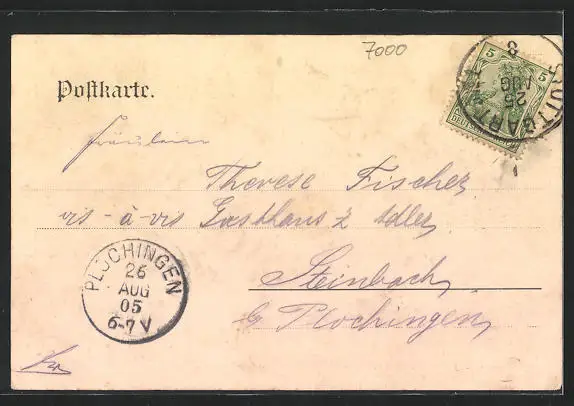 7000
Postkarte.
5 5
DEUTSCHES REICH
STUTTGART
25
AUG
8
Fräulein
Therese Fischer
vis-à-vis Gasthaus z Adler,
Steinbach,
b/ Plochingen,
PLOCHINGEN
26
AUG
05
6-7 V